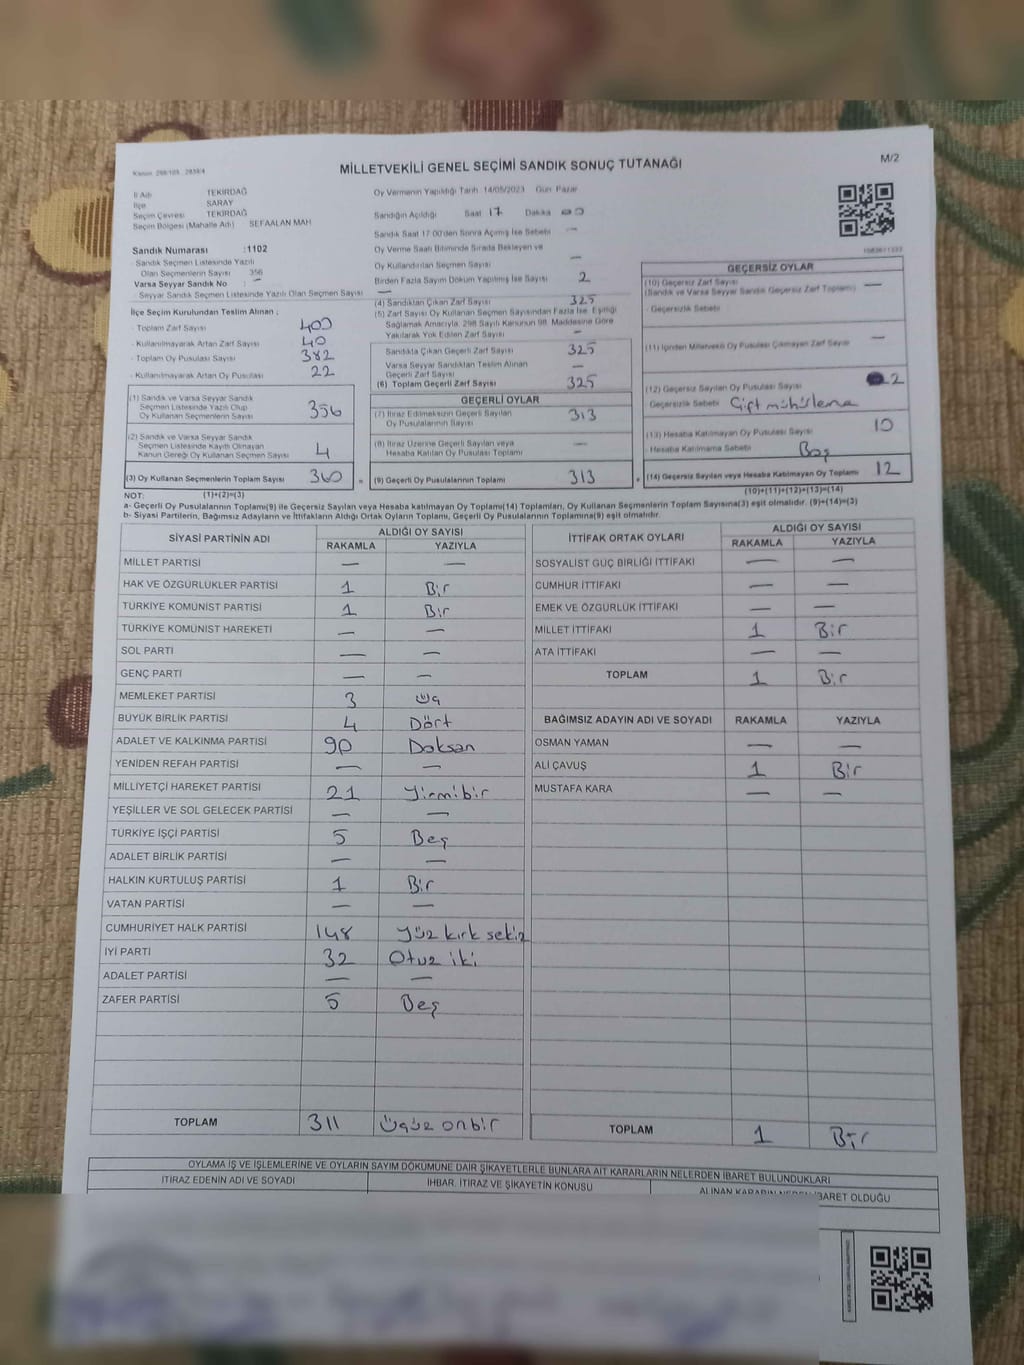 Kanun: 298/105 , 2839/4
MİLLETVEKİLİ GENEL SEÇİMİ SANDIK SONUÇ TUTANAĞI
M/2
İl Adı TEKİRDAĞ
İlçe SARAY
Seçim Çevresi TEKİRDAĞ
Seçim Bölgesi (Mahalle Adı) SEFAALAN MAH
Sandık Numarası :1102
- Sandık Seçmen Listesinde Yazılı
Olan Seçmenlerin Sayısı 356
Varsa Seyyar Sandık No : —
- Seyyar Sandık Seçmen Listesinde Yazılı Olan Seçmen Sayısı —
İlçe Seçim Kurulundan Teslim Alınan ;
- Toplam Zarf Sayısı 400
- Kullanılmayarak Artan Zarf Sayısı 40
- Toplam Oy Pusulası Sayısı 382
- Kullanılmayarak Artan Oy Pusulası 22
(1) Sandık ve Varsa Seyyar Sandık
Seçmen Listesinde Yazılı Olup
Oy Kullanan Seçmenlerin Sayısı 356
(2) Sandık ve Varsa Seyyar Sandık
Seçmen Listesinde Kayıtlı Olmayan
Kanun Gereği Oy Kullanan Seçmen Sayısı 4
(3) Oy Kullanan Seçmenlerin Toplam Sayısı 360
Oy Vermenin Yapıldığı Tarih 14/05/2023 Gün Pazar
Sandığın Açıldığı Saat 17 Dakika 00
Sandık Saat 17:00'den Sonra Açılmış İse Sebebi —
Oy Verme Saati Bitiminde Sırada Bekleyen ve
Oy Kullandırılan Seçmen Sayısı —
Birden Fazla Sayım Döküm Yapılmış İse Sayısı 2
(4) Sandıktan Çıkan Zarf Sayısı 325
(5) Zarf Sayısı Oy Kullanan Seçmen Sayısından Fazla İse, Eşitliği
Sağlamak Amacıyla, 298 Sayılı Kanunun 98. Maddesine Göre
Yakılarak Yok Edilen Zarf Sayısı —
Sandıkta Çıkan Geçerli Zarf Sayısı 325
Varsa Seyyar Sandıktan Teslim Alınan
Geçerli Zarf Sayısı —
(6) Toplam Geçerli Zarf Sayısı 325
GEÇERLİ OYLAR
(7) İtiraz Edilmeksizin Geçerli Sayılan
Oy Pusulalarının Sayısı 313
(8) İtiraz Üzerine Geçerli Sayılan veya
Hesaba Katılan Oy Pusulası Toplamı —
(9) Geçerli Oy Pusulalarının Toplamı 313
GEÇERSİZ OYLAR
(10) Geçersiz Zarf Sayısı —
(Sandık ve Varsa Seyyar Sandık Geçersiz Zarf Toplamı)
- Geçersizlik Sebebi
(11) İçinden Milletvekili Oy Pusulası Çıkmayan Zarf Sayısı —
(12) Geçersiz Sayılan Oy Pusulası Sayısı 2
Geçersizlik Sebebi Çift mühürleme
(13) Hesaba Katılmayan Oy Pusulası Sayısı 10
- Hesaba Katılmama Sebebi Boş
(14) Geçersiz Sayılan veya Hesaba Katılmayan Oy Toplamı 12
NOT: (1)+(2)=(3) (10)+(11)+(12)+(13)=(14)
a- Geçerli Oy Pusulalarının Toplamı(9) ile Geçersiz Sayılan veya Hesaba Katılmayan Oy Toplamı(14) Toplamları, Oy Kullanan Seçmenlerin Toplam Sayısına(3) eşit olmalıdır. (9)+(14)=(3)
b- Siyasi Partilerin, Bağımsız Adayların ve İttifakların Aldığı Ortak Oyların Toplamı, Geçerli Oy Pusulalarının Toplamına(9) eşit olmalıdır.
SİYASİ PARTİNİN ADI ALDIĞI OY SAYISI
RAKAMLA YAZIYLA
MİLLET PARTİSİ — —
HAK VE ÖZGÜRLÜKLER PARTİSİ 1 Bir
TÜRKİYE KOMÜNİST PARTİSİ 1 Bir
TÜRKİYE KOMÜNİST HAREKETİ — —
SOL PARTİ — —
GENÇ PARTİ — —
MEMLEKET PARTİSİ 3 Üç
BÜYÜK BİRLİK PARTİSİ 4 Dört
ADALET VE KALKINMA PARTİSİ 90 Doksan
YENİDEN REFAH PARTİSİ — —
MİLLİYETÇİ HAREKET PARTİSİ 21 Yirmibir
YEŞİLLER VE SOL GELECEK PARTİSİ — —
TÜRKİYE İŞÇİ PARTİSİ 5 Beş
ADALET BİRLİK PARTİSİ — —
HALKIN KURTULUŞ PARTİSİ 1 Bir
VATAN PARTİSİ — —
CUMHURİYET HALK PARTİSİ 148 Yüz kırk sekiz
İYİ PARTİ 32 Otuz iki
ADALET PARTİSİ — —
ZAFER PARTİSİ 5 Beş
TOPLAM 311 Üçyüz onbir
İTTİFAK ORTAK OYLARI ALDIĞI OY SAYISI
RAKAMLA YAZIYLA
SOSYALİST GÜÇ BİRLİĞİ İTTİFAKI — —
CUMHUR İTTİFAKI — —
EMEK VE ÖZGÜRLÜK İTTİFAKI — —
MİLLET İTTİFAKI 1 Bir
ATA İTTİFAKI — —
TOPLAM 1 Bir
BAĞIMSIZ ADAYIN ADI VE SOYADI RAKAMLA YAZIYLA
OSMAN YAMAN — —
ALİ ÇAVUŞ 1 Bir
MUSTAFA KARA — —
TOPLAM 1 Bir
OYLAMA İŞ VE İŞLEMLERİNE VE OYLARIN SAYIM DÖKÜMÜNE DAİR ŞİKAYETLERLE BUNLARA AİT KARARLARIN NELERDEN İBARET BULUNDUKLARI
İTİRAZ EDENİN ADI VE SOYADI İHBAR, İTİRAZ VE ŞİKAYETİN KONUSU ALINAN KARARIN NEDEN İBARET OLDUĞU